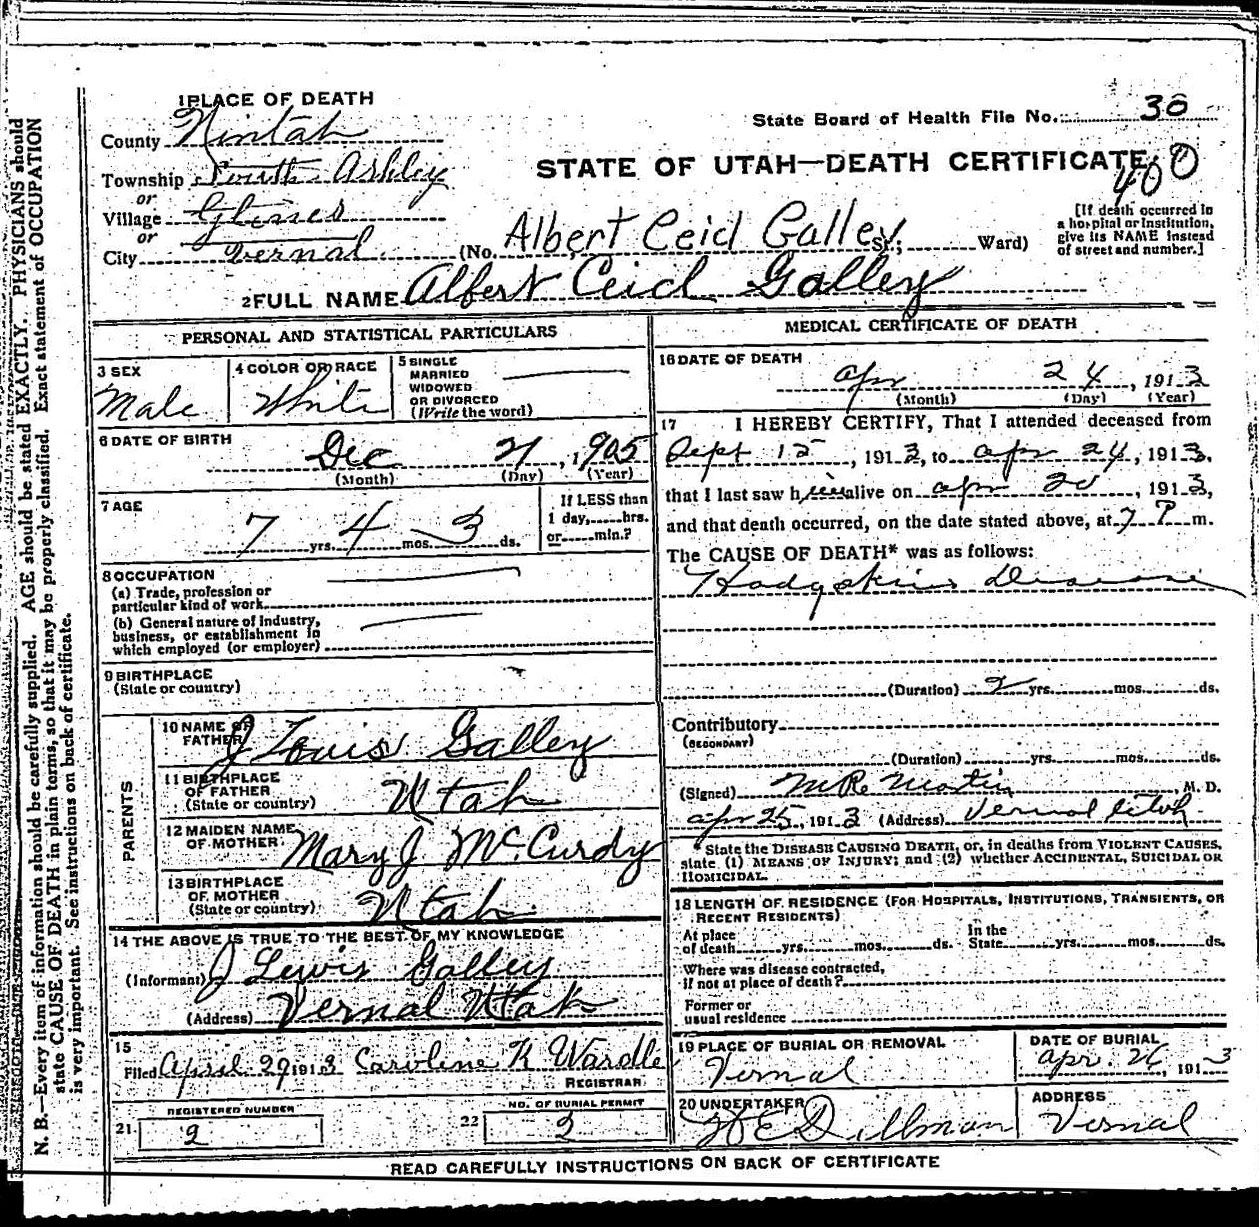 1 PLACE OF DEATH
County Uintah
Township South Ashley
or
Village Glines
or
City Vernal (No. Albert Ceicl Galley St.; Ward)
State Board of Health File No. 30
STATE OF UTAH—DEATH CERTIFICATE
400
[If death occurred in
a hospital or institution,
give its NAME instead
of street and number.]
2 FULL NAME Albert Ceicl Galley
PERSONAL AND STATISTICAL PARTICULARS
3 SEX
Male
4 COLOR OR RACE
White
5 SINGLE
MARRIED
WIDOWED
OR DIVORCED
(Write the word)
6 DATE OF BIRTH
Dec 21, 1905
(Month) (Day) (Year)
7 AGE
7 yrs. 4 mos. 3 ds.
If LESS than
1 day, hrs.
or min.?
8 OCCUPATION
(a) Trade, profession or
particular kind of work
(b) General nature of industry,
business, or establishment in
which employed (or employer)
9 BIRTHPLACE
(State or country)
PARENTS
10 NAME OF
FATHER J Louis Galley
11 BIRTHPLACE
OF FATHER
(State or country) Utah
12 MAIDEN NAME
OF MOTHER Mary J McCurdy
13 BIRTHPLACE
OF MOTHER
(State or country) Utah
14 THE ABOVE IS TRUE TO THE BEST OF MY KNOWLEDGE
(Informant) J Lewis Galley
(Address) Vernal Utah
15
Filed April 29 1913 Caroline K Wardle
REGISTRAR
REGISTERED NUMBER
21 2
NO. OF BURIAL PERMIT
22 2
MEDICAL CERTIFICATE OF DEATH
16 DATE OF DEATH
Apr 24, 1913
(Month) (Day) (Year)
17 I HEREBY CERTIFY, That I attended deceased from
Sept 15, 1912, to Apr 24, 1913,
that I last saw him alive on Apr 20, 1913,
and that death occurred, on the date stated above, at 7 P m.
The CAUSE OF DEATH* was as follows:
Hodgskins Disease
(Duration) 2 yrs. mos. ds.
Contributory
(SECONDARY)
(Duration) yrs. mos. ds.
(Signed) M. R. Martin, M. D.
Apr 25, 1913 (Address) Vernal Utah
*State the DISEASE CAUSING DEATH, or, in deaths from VIOLENT CAUSES,
state (1) MEANS OF INJURY; and (2) whether ACCIDENTAL, SUICIDAL OR
HOMICIDAL.
18 LENGTH OF RESIDENCE (FOR HOSPITALS, INSTITUTIONS, TRANSIENTS, OR
RECENT RESIDENTS)
At place
of death yrs. mos. ds.
In the
State yrs. mos. ds.
Where was disease contracted,
if not at place of death?
Former or
usual residence
19 PLACE OF BURIAL OR REMOVAL
Vernal
DATE OF BURIAL
Apr. 26, 1913
20 UNDERTAKER
W E Dillman
ADDRESS
Vernal
READ CAREFULLY INSTRUCTIONS ON BACK OF CERTIFICATE
N. B.—Every item of information should be carefully supplied. AGE should be stated EXACTLY. PHYSICIANS should
state CAUSE OF DEATH in plain terms, so that it may be properly classified. Exact statement of OCCUPATION
is very important. See instructions on back of certificate.